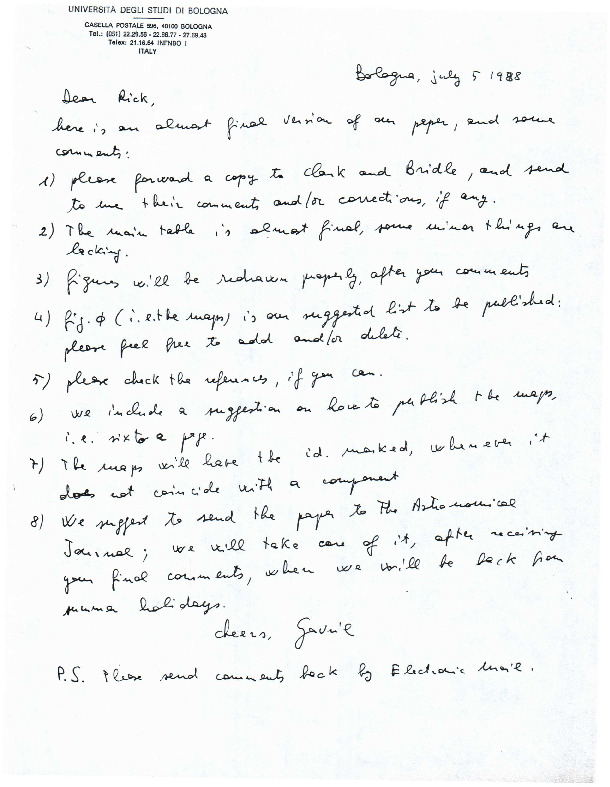 UNIVERSITÀ DEGLI STUDI DI BOLOGNA
CASELLA POSTALE 596, 40100 BOLOGNA
Tel.: (051) 22.29.56 - 22.98.77 - 27.69.43
Telex: 21.16.64 INFNBO I
ITALY
Bologna, july 5 1988
Dear Rick,
here is an almost final version of our paper, and some
comments:
1) please forward a copy to Clark and Bridle, and send
to me their comments and/or corrections, if any.
2) The main table is almost final, some minor things are
lacking.
3) figures will be redrawn properly, after your comments
4) fig. ϕ (i.e. the maps) is our suggested list to be published:
please feel free to add and/or delete.
5) please check the references, if you can.
6) we include a suggestion on how to publish the maps,
i.e. six to a page.
7) The maps will have the id. marked, whenever it
does not coincide with a component
8) We suggest to send the paper to The Astronomical
Journal; we will take care of it, after receiving
your final comments, when we will be back from
summer holidays.
cheers, Gavril
P.S. Please send comments back by Electronic Mail.